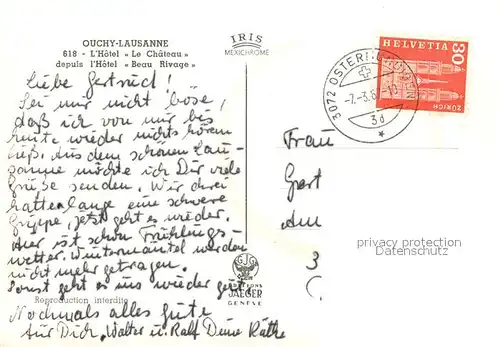 OUCHY-LAUSANNE
618 - L'Hôtel « Le Château »
depuis l'Hôtel « Beau Rivage »
IRIS
MEXICHROME
HELVETIA
30
ZÜRICH
3072 OSTER
-7.-3.6
3d
Liebe Gertrud!
Sei mir nicht böse,
daß ich von mir bis
heute wieder nichts hören
ließ. Aus dem schönen Lau-
sanne möchte ich Dir viele
Grüße senden. Wir drei
hatten lange eine schwere
Grippe, jetzt geht es wieder.
Hier ist schon Frühlings-
wetter. Wintermantel werden
nicht mehr getragen.
Sonst geht es uns wieder gut.
Reproduction interdite
Nochmals alles Gute
für Dich, Walter u. Ralf Deine Käthe
EDITIONS
JAEGER
GENÈVE
Frau
Gert
Am
3
privacy protection
Datenschutz